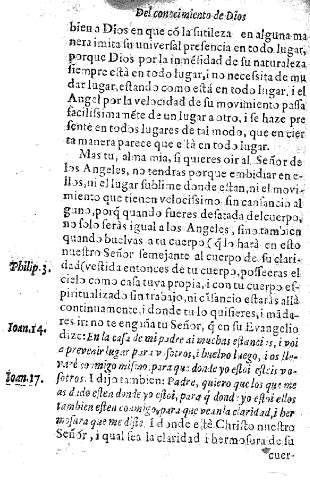 Del conocimiento de Dios
bien a Dios en que cō la sutileza en alguna ma
nera imita su universal presencia en todo lugar,
porque Dios por la inmēsidad de su naturaleza
siempre està en todo lugar, i no necesita de mu
dar lugar, estando como està en todo lugar, i el
Angel por la velocidad de su movimiento passa
facilissimamēte de un lugar a otro, i se haze pre
sente en todos lugares de tal modo, que en cier
ta manera parece que està en todo lugar.
Mas tu, alma mia, si quieres oir al Señor de
los Angeles, no tendras porque embidiar en e-
llos, ni el lugar sublime donde estan, ni el movi-
miento que tienen velocissimo sin cansancio al
guno, porq̄ quando fueres desatada del cuerpo,
no solo seràs igual a los Angeles, sino tambien
quando buelvas a tu cuerpo (q̄ lo harà en esto
nuestro Señor semejante al cuerpo de su clari-
Philip. 3. dad) vestida entonces de tu cuerpo, posseeras el
cielo como casa tuya propia, i con tu cuerpo es-
piritualizado sin trabajo, ni cāsancio estaràs allà
continuamente, i donde tu lo quisieres, i māda-
Ioan. 14. res ir: no te engaña tu Señor, q̄ en su Evangelio
dize: En la casa de mi padre ai muchas estancias, i voi
a prevenir lugar para vosotros, i buelvo luego, i os lle-
varè conmigo mismo, para que donde yo estoi esteis vo-
Ioan. 17. sotros. I dijo tambien: Padre, quiero que los que me
as dado esten donde yo estoi, para q̄ donde yo estoi ellos
tambien esten conmigo, para que vean la claridad, i her
mosura que me diste. I donde està Christo nuestro
Señor, i qual sea la claridad i hermosura de su
cuer-